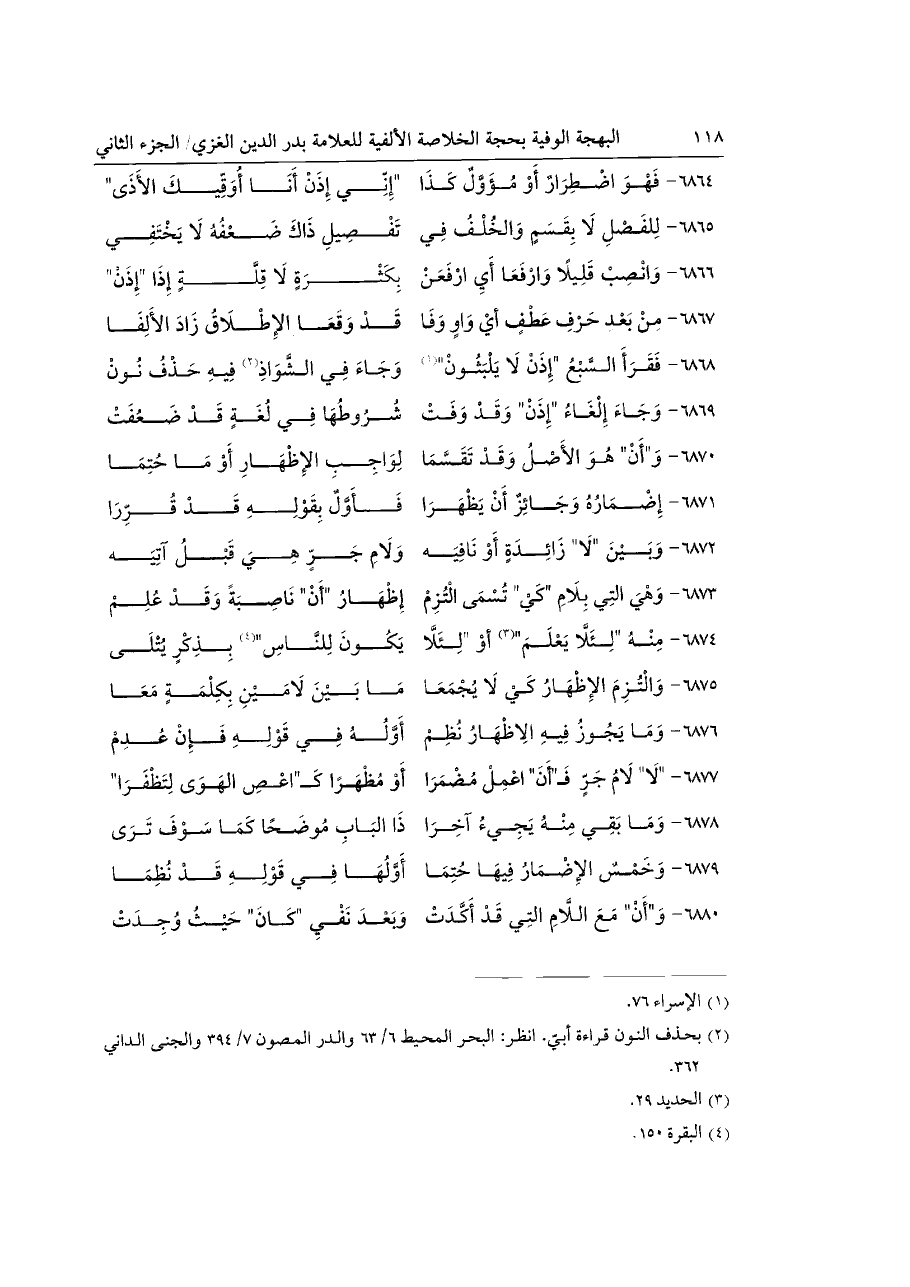 ١١٨ البهجة الوفية بحجة الخلاصة الألفية للعلامة بدر الدين الغزي/ الجزء الثاني
٦٨٦٤- فَهْوَ اضْطِرَارٌ أَوْ مُؤَوَّلٌ كَذَا "إِنِّي إِذَنْ أَنَا أُوَقِيكَ الأَذَى"
٦٨٦٥- لِلفَصْلِ لَا بِقَسَمٍ وَالخُلْفُ فِي تَفْصِيلِ ذَاكَ ضَعْفُهُ لَا يَخْتَفِي
٦٨٦٦- وَانْصِبْ قَلِيلًا وَارْفَعَا أَيِ ارْفَعَنْ بِكَثْرَةٍ لَا قِلَّةٍ إِذَا "إِذَنْ"
٦٨٦٧- مِنْ بَعْد حَرْفِ عَطْفٍ أيْ وَاوٍ وَفَا قَدْ وَقَعَا الإِطْلَاقُ زَادَ الأَلِفَا
٦٨٦٨- فَقَرَأَ السَّبْعُ "إِذَنْ لَا يَلْبَثُونْ"(١) وَجَاءَ فِي الشَّوَاذِ(٢) فِيهِ حَذْفُ نُونْ
٦٨٦٩- وَجَاءَ إِلْغَاءُ "إِذَنْ" وَقَدْ وَفَتْ شُرُوطُهَا فِي لُغَةٍ قَدْ ضَعُفَتْ
٦٨٧٠- وَ"أَنْ" هُوَ الأَصْلُ وَقَدْ تَقَسَّمَا لِوَاجِبِ الإِظْهَارِ أَوْ مَا حُتِمَا
٦٨٧١- إِضْمَارُهُ وَجَائِزٌ أَنْ يَظْهَرَا فَأَوَّلٌ بِقَوْلِهِ قَدْ قُرِّرَا
٦٨٧٢- وَبَيْنَ "لَا" زَائِدَةٍ أَوْ نَافِيَه وَلَامِ جَرٍّ هِيَ قَبْلُ آتِيَه
٦٨٧٣- وَهْيَ التِي بِلَامِ "كَيْ" تُسْمَى الْتُزِمْ إِظْهَارُ "أَنْ" نَاصِبَةً وَقَدْ عُلِمْ
٦٨٧٤- مِنْهُ "لِئَلَّا يَعْلَمَ"(٣) أَوْ "لِئَلَّا يَكُونَ لِلنَّاسِ"(٤) بِذِكْرٍ يُتْلَى
٦٨٧٥- وَالْتُزِمَ الإِظْهَارُ كَيْ لَا يُجْمَعَا مَا بَيْنَ لَامَيْنِ بِكِلْمَةٍ مَعَا
٦٨٧٦- وَمَا يَجُوزُ فِيهِ الِاظْهَارُ نُظِمْ أَوَّلُهُ فِي قَوْلِهِ فَإِنْ عُدِمْ
٦٨٧٧- "لَا" لَامُ جَرٍّ فَـ"أَنَ" اعْمِلْ مُضْمَرَا أَوْ مُظْهَرًا كَـ"اعْصِ الهَوَى لِتَظْفَرَا"
٦٨٧٨- وَمَا بَقِي مِنْهُ يَجِيءُ آخِرَا ذَا البَابِ مُوضَحًا كَمَا سَوْفَ تَرَى
٦٨٧٩- وَخَمْسٌ الإِضْمَارُ فِيهَا حُتِمَا أَوَّلُهَا فِي قَوْلِهِ قَدْ نُظِمَا
٦٨٨٠- وَ"أَنْ" مَعَ اللَّامِ التِي قَدْ أَكَّدَتْ وَبَعْدَ نَفْيِ "كَانَ" حَيْثُ وُجِدَتْ
(١) الإسراء ٧٦.
(٢) بحذف النون قراءة أبيّ. انظر: البحر المحيط ٦/ ٦٣ والدر المصون ٧/ ٣٩٤ والجنى الداني
٣٦٢.
(٣) الحديد ٢٩.
(٤) البقرة ١٥٠.